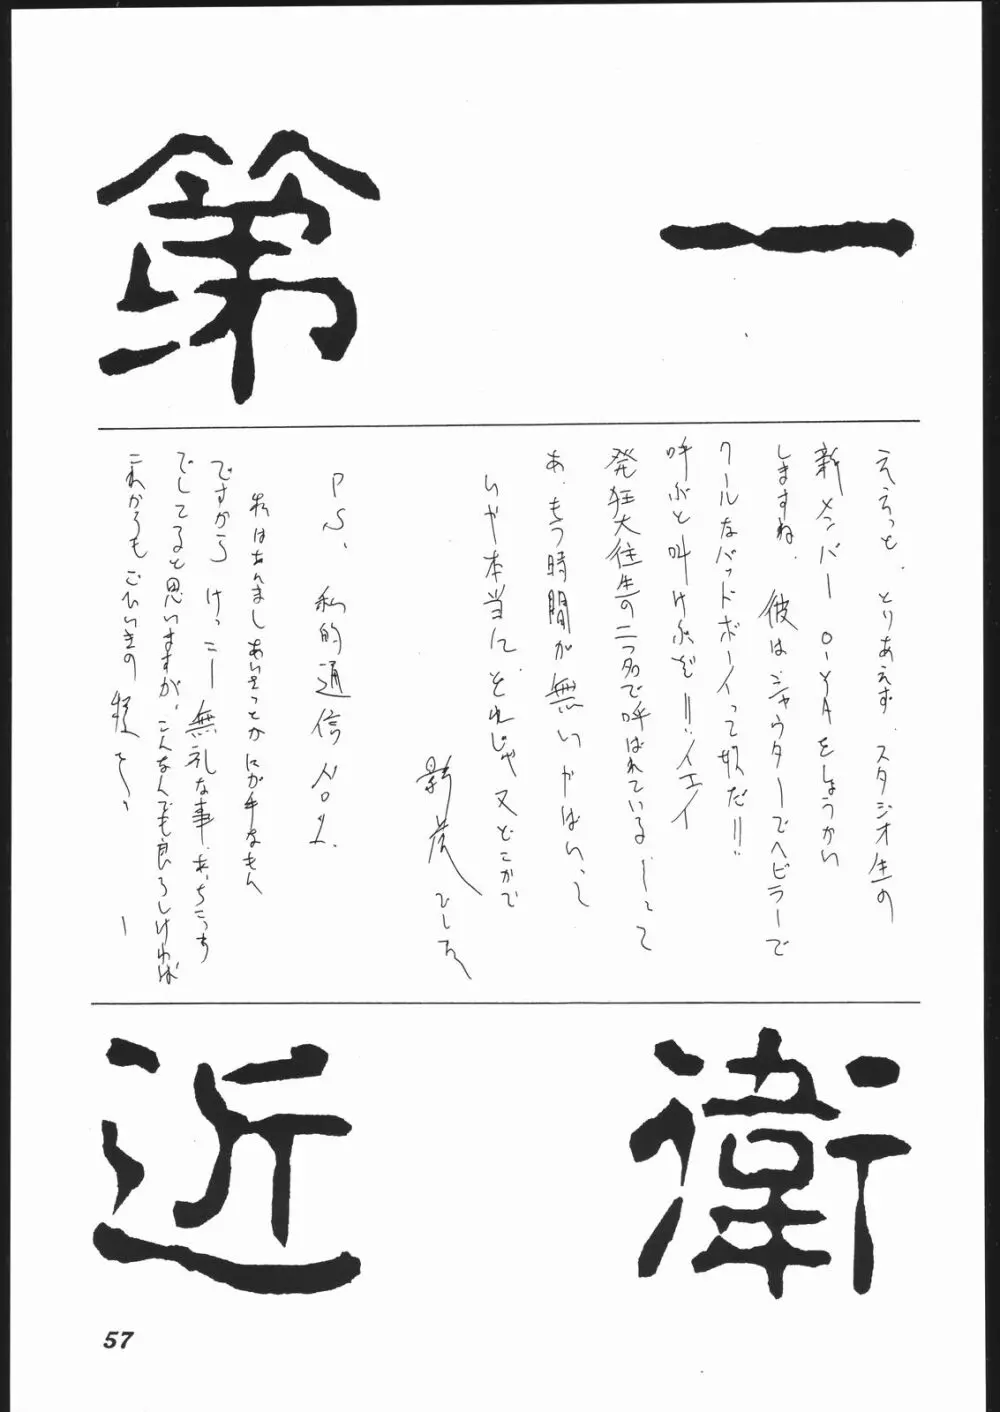 第一
ええっと、とりあえず、スタジオ生の
新メンバー O-YAをしょうかい
しますね、彼はシャウターでヘビラーで
クールなバッドボーイって奴だ!!
呼ぶと叫けぶぜ!!イエイ
発狂大往生の二つ名で呼ばれている――って
あ、もう時間が無いやばいって
いや本当に、それじゃ又どこかで
ひした
P.S、私的通信 No.1.
私はあんましあいそとかにが手なもん
ですから けっこー無礼な事、あっちこっち
でしてると思いますが、こんなんでも良ろしければ
これからもごひいきの程を、、ー
近衛
57